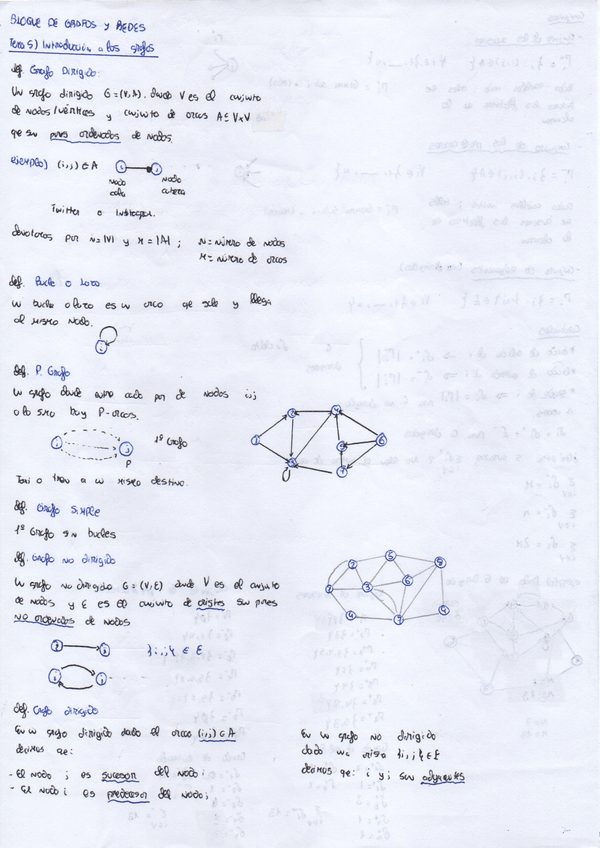 BLOQUE DE GRAFOS Y REDES
Tema 5) Introducción a los grafos
def. Grafo Dirigido:
Un grafo dirigido G = (V,A), donde V es el conjunto
de nodos/vértices y conjunto de arcos A ⊆ V×V
que son pares ordenados de nodos.
ejemplo) (i,j) ∈ A
i j
nodo nodo
cola cabeza
Twitter o Instagram.
denotamos por n=|V| y m=|A| ; n = número de nodos
m = número de arcos
def. Bucle o Lazo
un bucle o lazo es un arco que sale y llega
al mismo nodo.
i
def. P. Grafo
Un grafo donde entre cada par de nodos i,j
a lo sumo hay P-arcos.
i j 1º Grafo
P
a un mismo destino.
def. Grafo Simple
1º Grafo sin bucles
def. Grafo no dirigido
Un grafo no dirigido G = (V,E) donde V es el conjunto
de nodos y E es el conjunto de aristas son pares
no ordenados de nodos
i j {i,j} ∈ E
i j
def. Grafo dirigido
En un grafo dirigido dado el arco (i,j) ∈ A
decimos que:
- El nodo j es sucesor del nodo i
- El nodo i es predecesor del nodo j
En un grafo no dirigido
dado una arista {i,j} ∈ E
decimos que: i y j son adyacentes